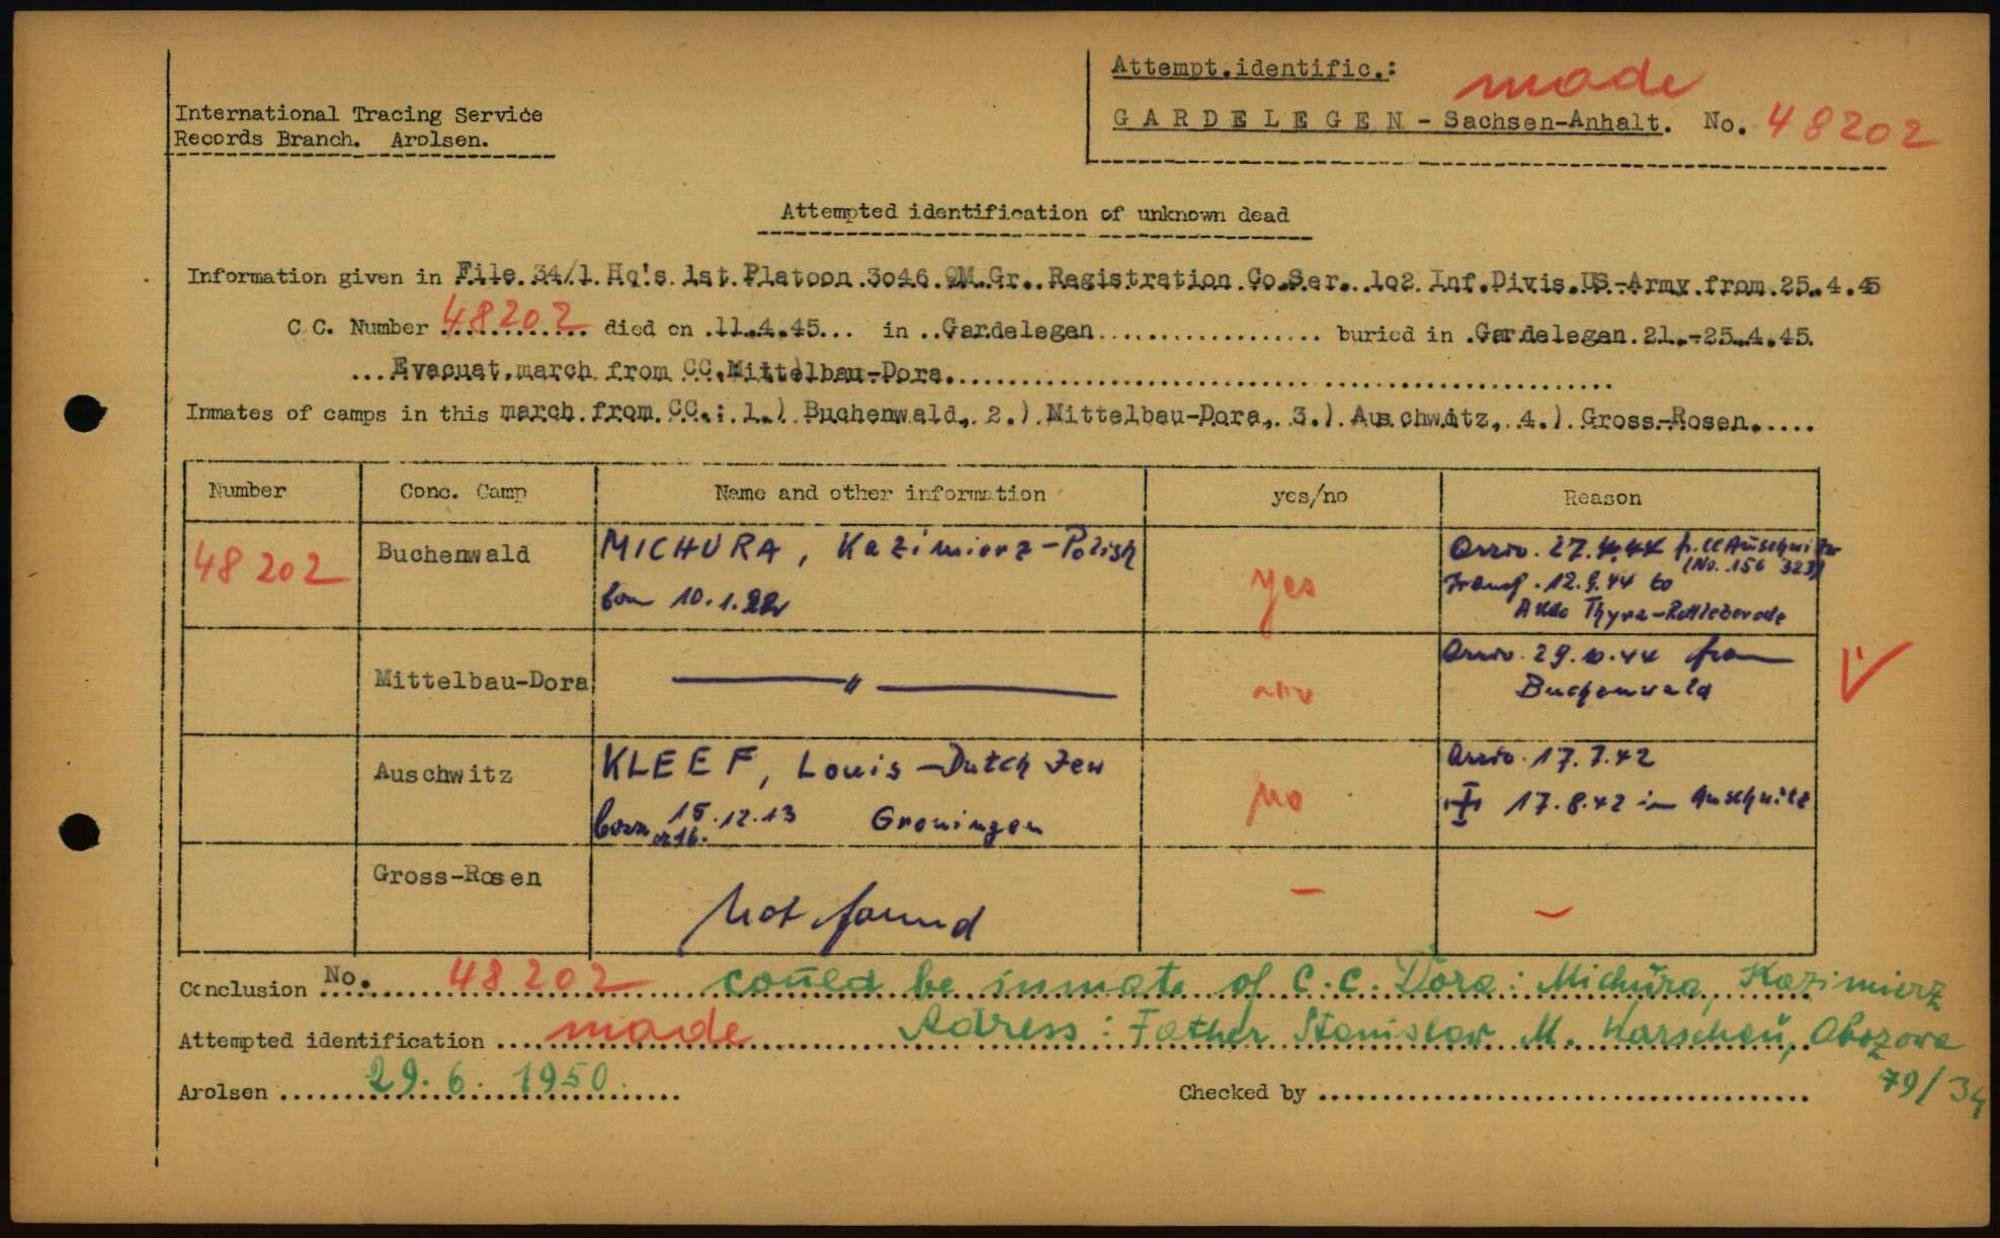 Attempt.identific.: made
International Tracing Service
Records Branch. Arolsen.
GARDELEGEN - Sachsen-Anhalt. No. 48202
Attempted identification of unknown dead
Information given in File.34/1.Hq's.1st.Platoon.3046.QM.Gr..Registration.Co.Ser..102.Inf.Divis.US.-Army.from.25.4.45
C C. Number 48202 died on .11.4.45... in ..Gardelegen.................. buried in .Gardelegen.21.-25.4.45.
...Evacuat.march from CC.Mittelbau-Dora.
Inmates of camps in this march.from.CC.: 1.) Buchenwald, 2.) Mittelbau-Dora, 3.) Auschwitz, 4.) Gross-Rosen.....
Number Conc. Camp Name and other information yes/no Reason
48202 Buchenwald MICHURA, Kazimierz-Polish yes Arriv. 27.4.44 fr. CC Auschwitz
(No. 156 323)
born 10.1.22 Transf. 12.9.44 to
Akdo Thyra-Rottleberode
Mittelbau-Dora — " — Arriv. 29.10.44 from
Buchenwald
Auschwitz KLEEF, Louis - Dutch Jew no Arriv. 17.7.42
born 15.12.13 Groningen 17.8.42 in Auschwitz
or 16.
Gross-Rosen not found – –
Conclusion No. 48202 could be inmate of C.C. Dora: Michura, Kazimierz
Attempted identification made Adress: Father Stanislav M. Warschau, Obozowa
79/34
Arolsen 29.6.1950. Checked by